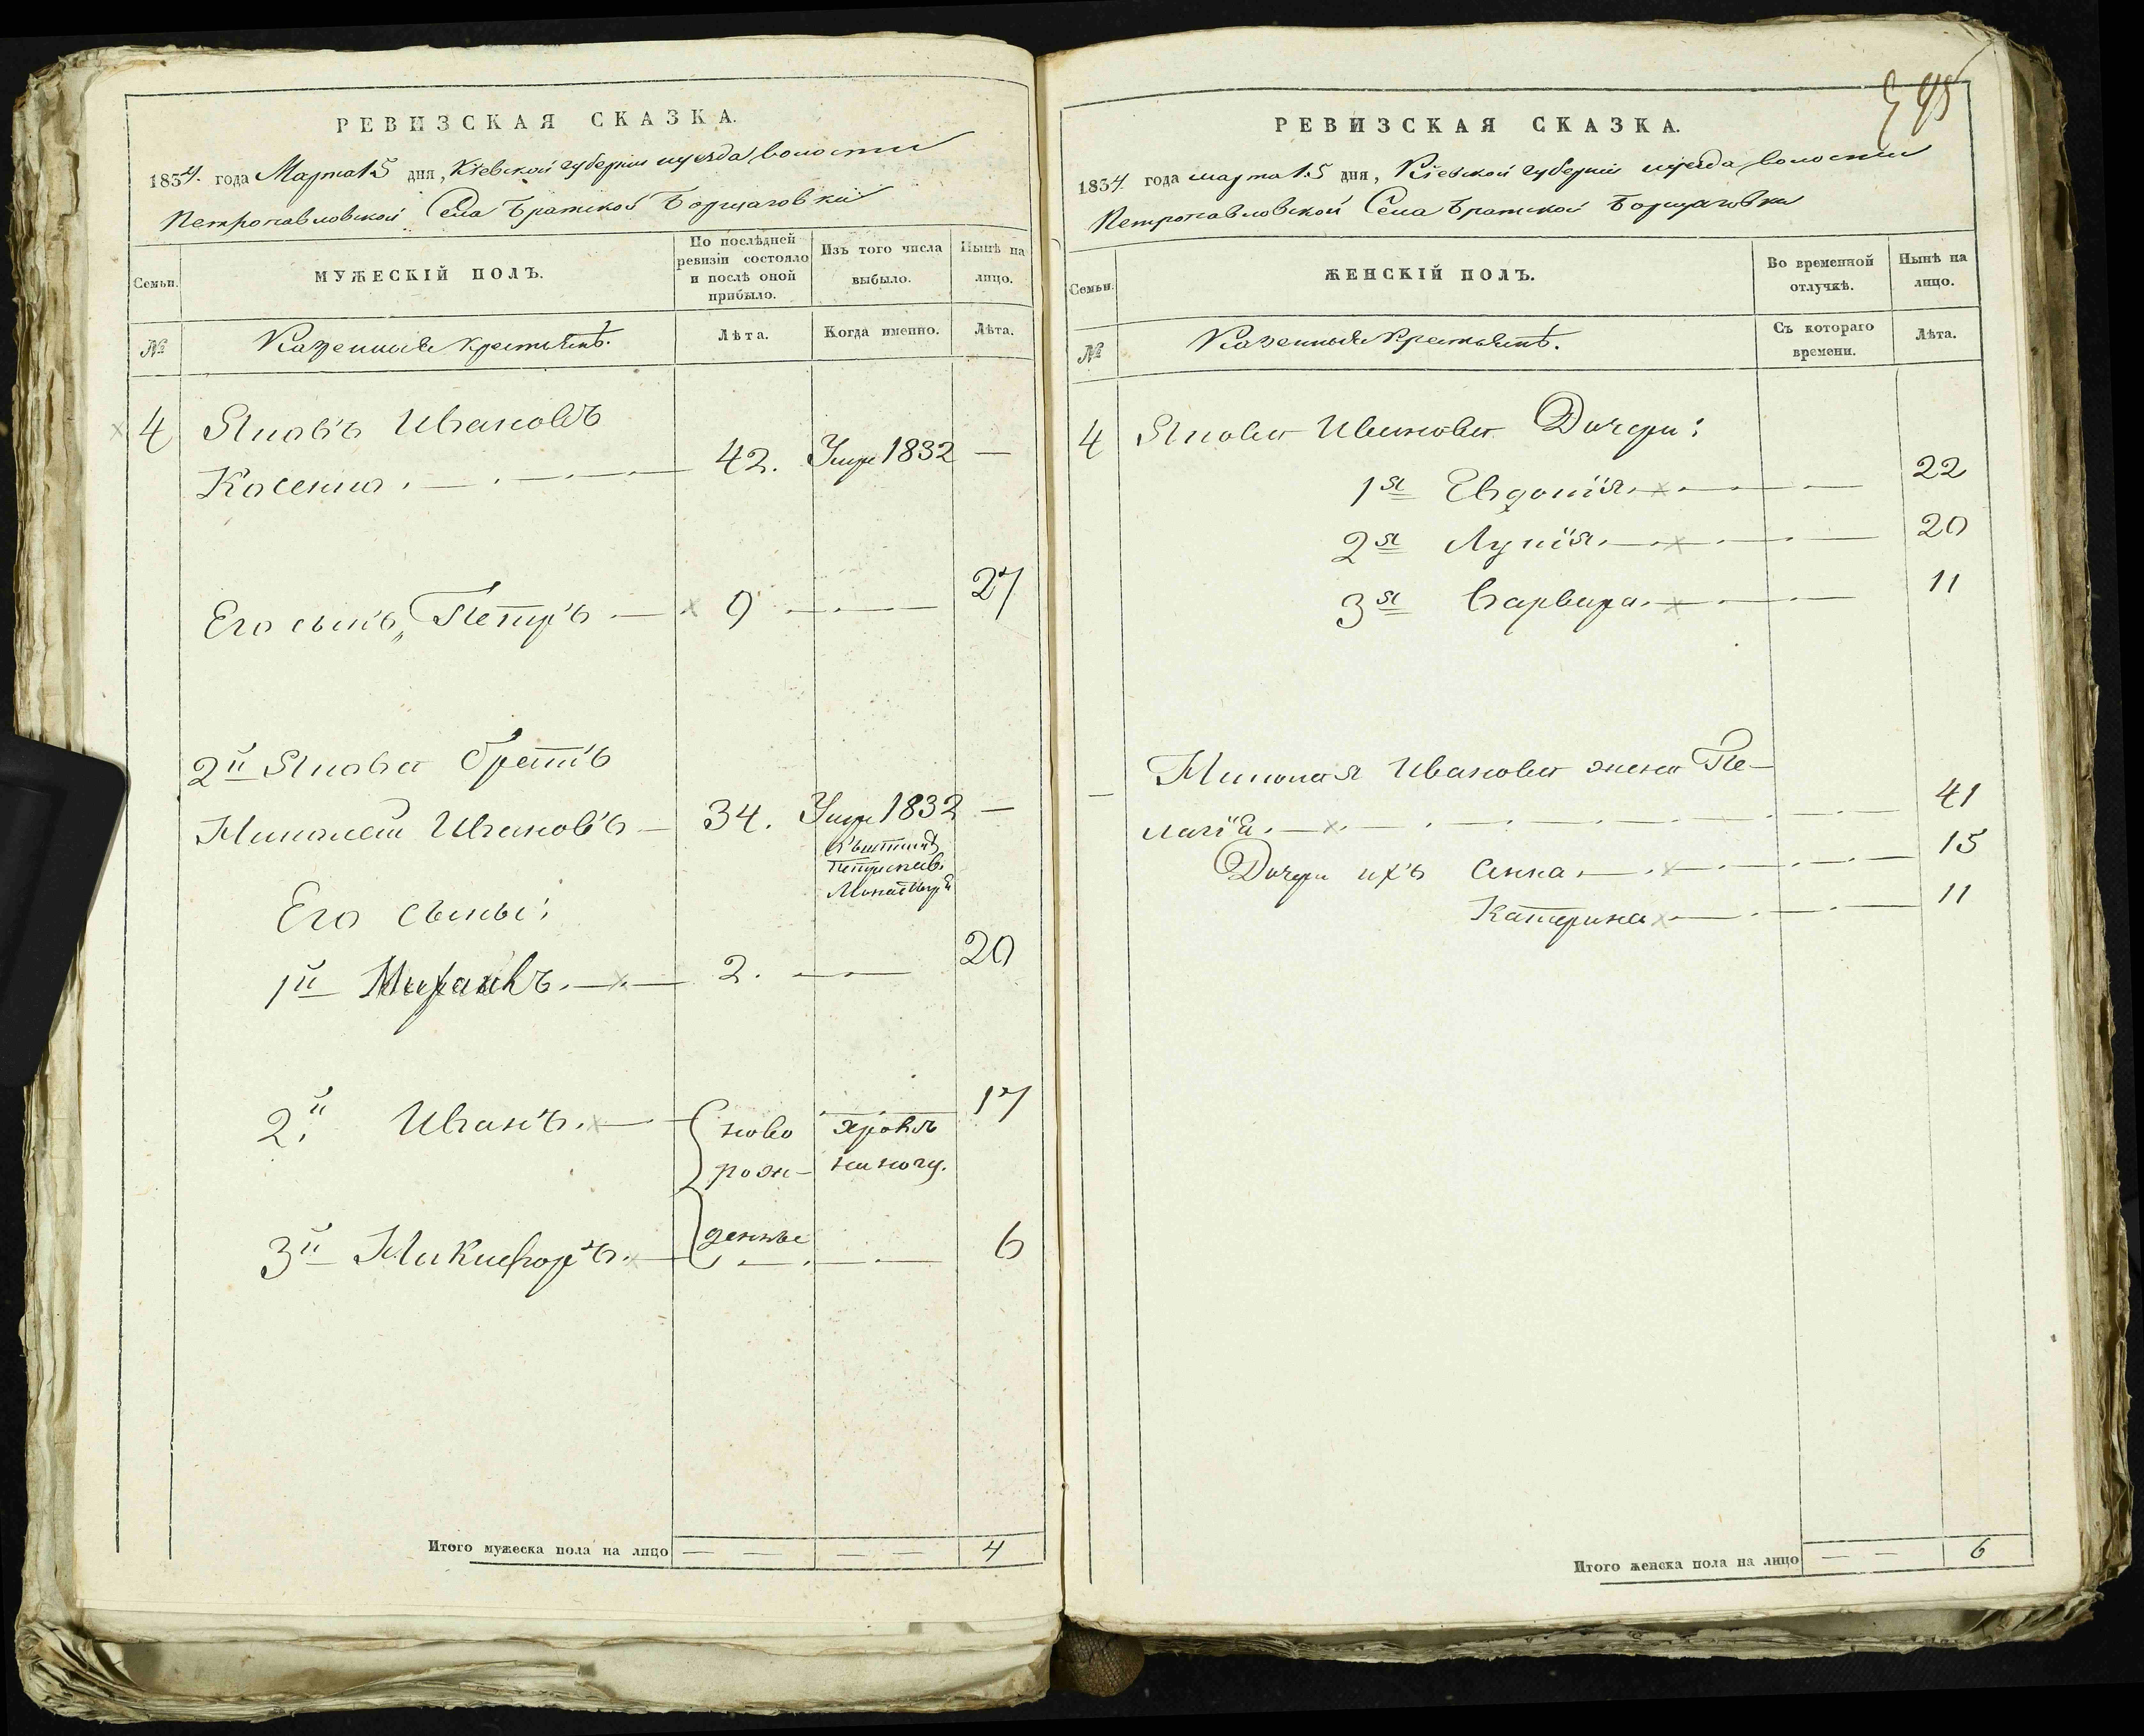 РЕВИЗСКАЯ СКАЗКА.
1834. года Марта 15 дня, Кіевской губерніи и уезда, волости
Петропавловской Села Братской Борщаговки
Семьи.
МУЖЕСКІЙ ПОЛЪ.
По послѣдней ревизіи состояло и послѣ оной прибыло.
Изъ того числа выбыло.
Нынѣ на лицо.
№
Казенные крестьянѣ.
Лѣта.
Когда именно.
Лѣта.
4 Яковъ Ивановъ
Косенко 42. Умре 1832 —
Его сынъ, Петръ — 9 — 27
2й Якова братъ
Николай Ивановъ — 34. Умре 1832 —
Монастыр
Его сыны:
1й Михаилъ. — 2. — 20
2й Иванъ. — 17
ново рож-
хромъ на ногу.
денные
3й Никифоръ. — 6
Итого мужеска пола на лицо — — — — 4
595
РЕВИЗСКАЯ СКАЗКА.
1834. года марта 15 дня, Кіевской губерніи и уезда, волости
Петропавловской Села Братской Борщаговки
Семьи.
ЖЕНСКІЙ ПОЛЪ.
Во временной отлучкѣ.
Нынѣ на лицо.
№
Казенные Крестьянѣ.
Съ котораго времени.
Лѣта.
4 Якова Иванова Дочери:
1я Евдокія. — 22
2я Лукія. — 20
3я Варвара. — 11
— Николая Иванова жена Пе-
лагія. — 41
Дочери ихъ Анна — 15
Катерина — 11
Итого женска пола на лицо — — 6